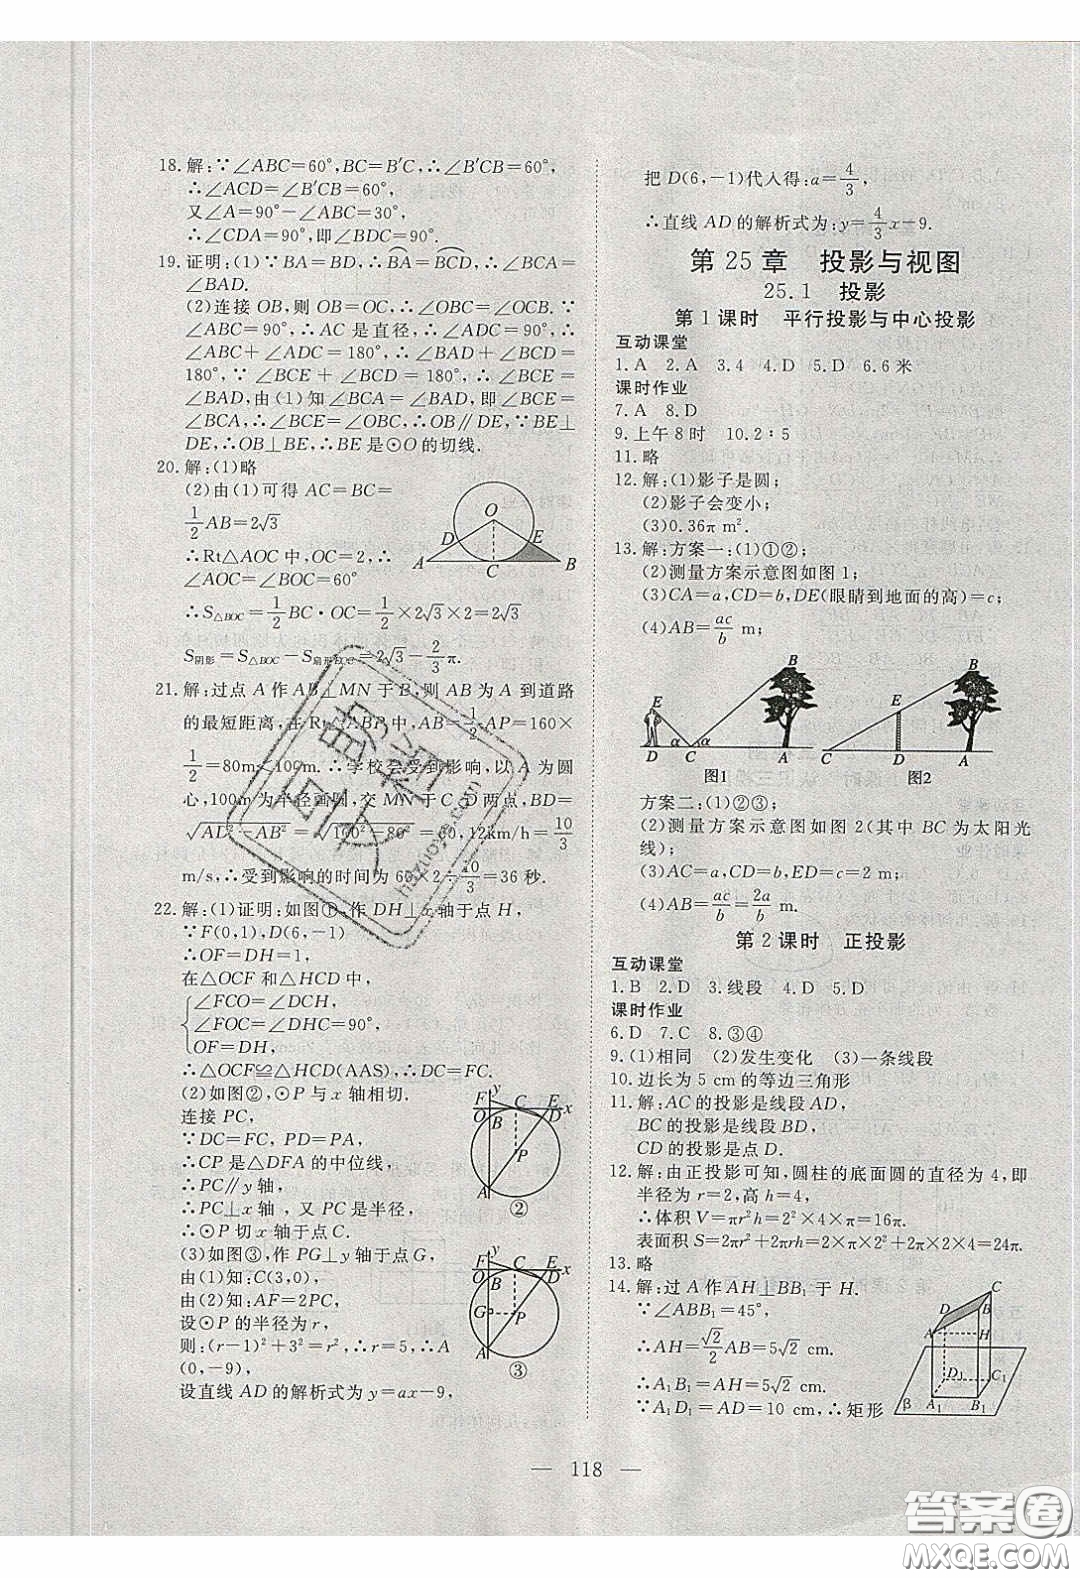 18.解:∵∠ABC=60°,BC=B′C,∴∠B′CB=60°,
∴∠ACD=∠B′CB=60°,
又∠A=90°-∠ABC=30°,
∴∠CDA=90°,即∠BDC=90°.
19.证明:(1)∵BA=BD,∴BA=BCD,∴∠BCA=
∠BAD.
(2)连接OB,则OB=OC,∴∠OBC=∠OCB.∵
∠BCA=90°,∴AC是直径,∴∠ABC=
∠ADC=180°,∴∠BAD+∠BCD=
180°,∵∠BCE+∠BCD=180°,∴∠BCE=
∠BAD,由(1)知∠BCA=∠BAD,∴∠BCE=
∠BCA,∴∠BCE=∠OBC,∴OB∥DE,∵BE⊥
DE,∴OB⊥BE,∴BE是⊙O的切线.
20.解:(1)略
(2)由(1)可得AC=BC=
1/2AB=2√3
∴Rt△AOC中,OC=2,∴
∠AOC=∠BOC=60°
∴S△BOC=1/2BC·OC=1/2×2√3×2=2√3
S阴影=S△BOC-S扇形EOC=2√3-2/3π.
21.解:过点A作AB⊥MN于B,则AB为A到道路
的最短距离,在Rt△ABP中,AB=1/2AP=160×
1/2=80m<100m.∴学校会受到影响,以A为圆
心,100m为半径画圆,交MN于C、D两点,BD=
√AD²-AB²=√100²-80²=60,12km/h=10/3
m/s,∴受到影响的时间为60×2÷10/3=36秒.
22.解:(1)证明:如图①,作DH⊥x轴于点H,
∵F(0,1),D(6,-1)
∴OF=DH=1,
在△OCF和△HCD中,
∠FCO=∠DCH,
∠FOC=∠DHC=90°,
OF=DH,
∴△OCF≌△HCD(AAS),∴DC=FC.
(2)如图②,⊙P与x轴相切.
连接PC,
∵DC=FC,PD=PA,
∴CP是△DFA的中位线,
∴PC∥y轴,
∴PC⊥x轴,又PC是半径,
∴⊙P切x轴于点C.
(3)如图③,作PG⊥y轴于点G,
由(1)知:C(3,0),
由(2)知:AF=2PC,
设⊙P的半径为r,
则:(r-1)²+3²=r²,∴r=5,∴A
(0,-9),
设直线AD的解析式为y=ax-9,
O
D
E
A
C
B
F
y
C
E
O
B
D
x
P
A
②
F
y
C
E
O
B
D
x
G
P
A
③
把D(6,-1)代入得:a=4/3,
∴直线AD的解析式为:y=4/3x-9.
第25章 投影与视图
25.1 投影
第1课时 平行投影与中心投影
互动课堂
1.A 2.A 3.4 4.D 5.D 6.6米
课时作业
7.A 8.D
9.上午8时 10.2:5
11.略
12.解:(1)影子是圆;
(2)影子会变小;
(3)0.36π m².
13.解:方案一:(1)①②;
(2)测量方案示意图如图1;
(3)CA=a,CD=b,DE(眼睛到地面的高)=c;
(4)AB=ac/b m;
B
E
D
α
C
α
A
图1
B
E
C
D
A
图2
方案二:(1)②③;
(2)测量方案示意图如图2(其中BC为太阳光
线);
(3)AC=a,CD=b,ED=c=2 m;
(4)AB=ac/b=2a/b m.
第2课时 正投影
互动课堂
1.B 2.D 3.线段 4.D 5.D
课时作业
6.D 7.C 8.③④
9.(1)相同 (2)发生变化 (3)一条线段
10.边长为5 cm的等边三角形
11.解:AC的投影是线段AD,
BC的投影是线段BD,
CD的投影是点D.
12.解:由正投影可知,圆柱的底面圆的直径为4,即
半径为r=2,高h=4,
∴体积V=πr²h=2²×4×π=16π.
表面积S=2πr²+2πrh=2×π×2²+2π×2×4=24π.
13.略
14.解:过A作AH⊥BB₁于H.
∵∠ABB₁=45°,
∴AH=√2/2AB=5√2 cm,
∴A₁B₁=AH=5√2 cm.
∵A₁D₁=AD=10 cm,∴矩形
C
D
B
A
H
D₁
C₁
β
A₁
B₁
— 118 —
答案圈
MXQE.COM